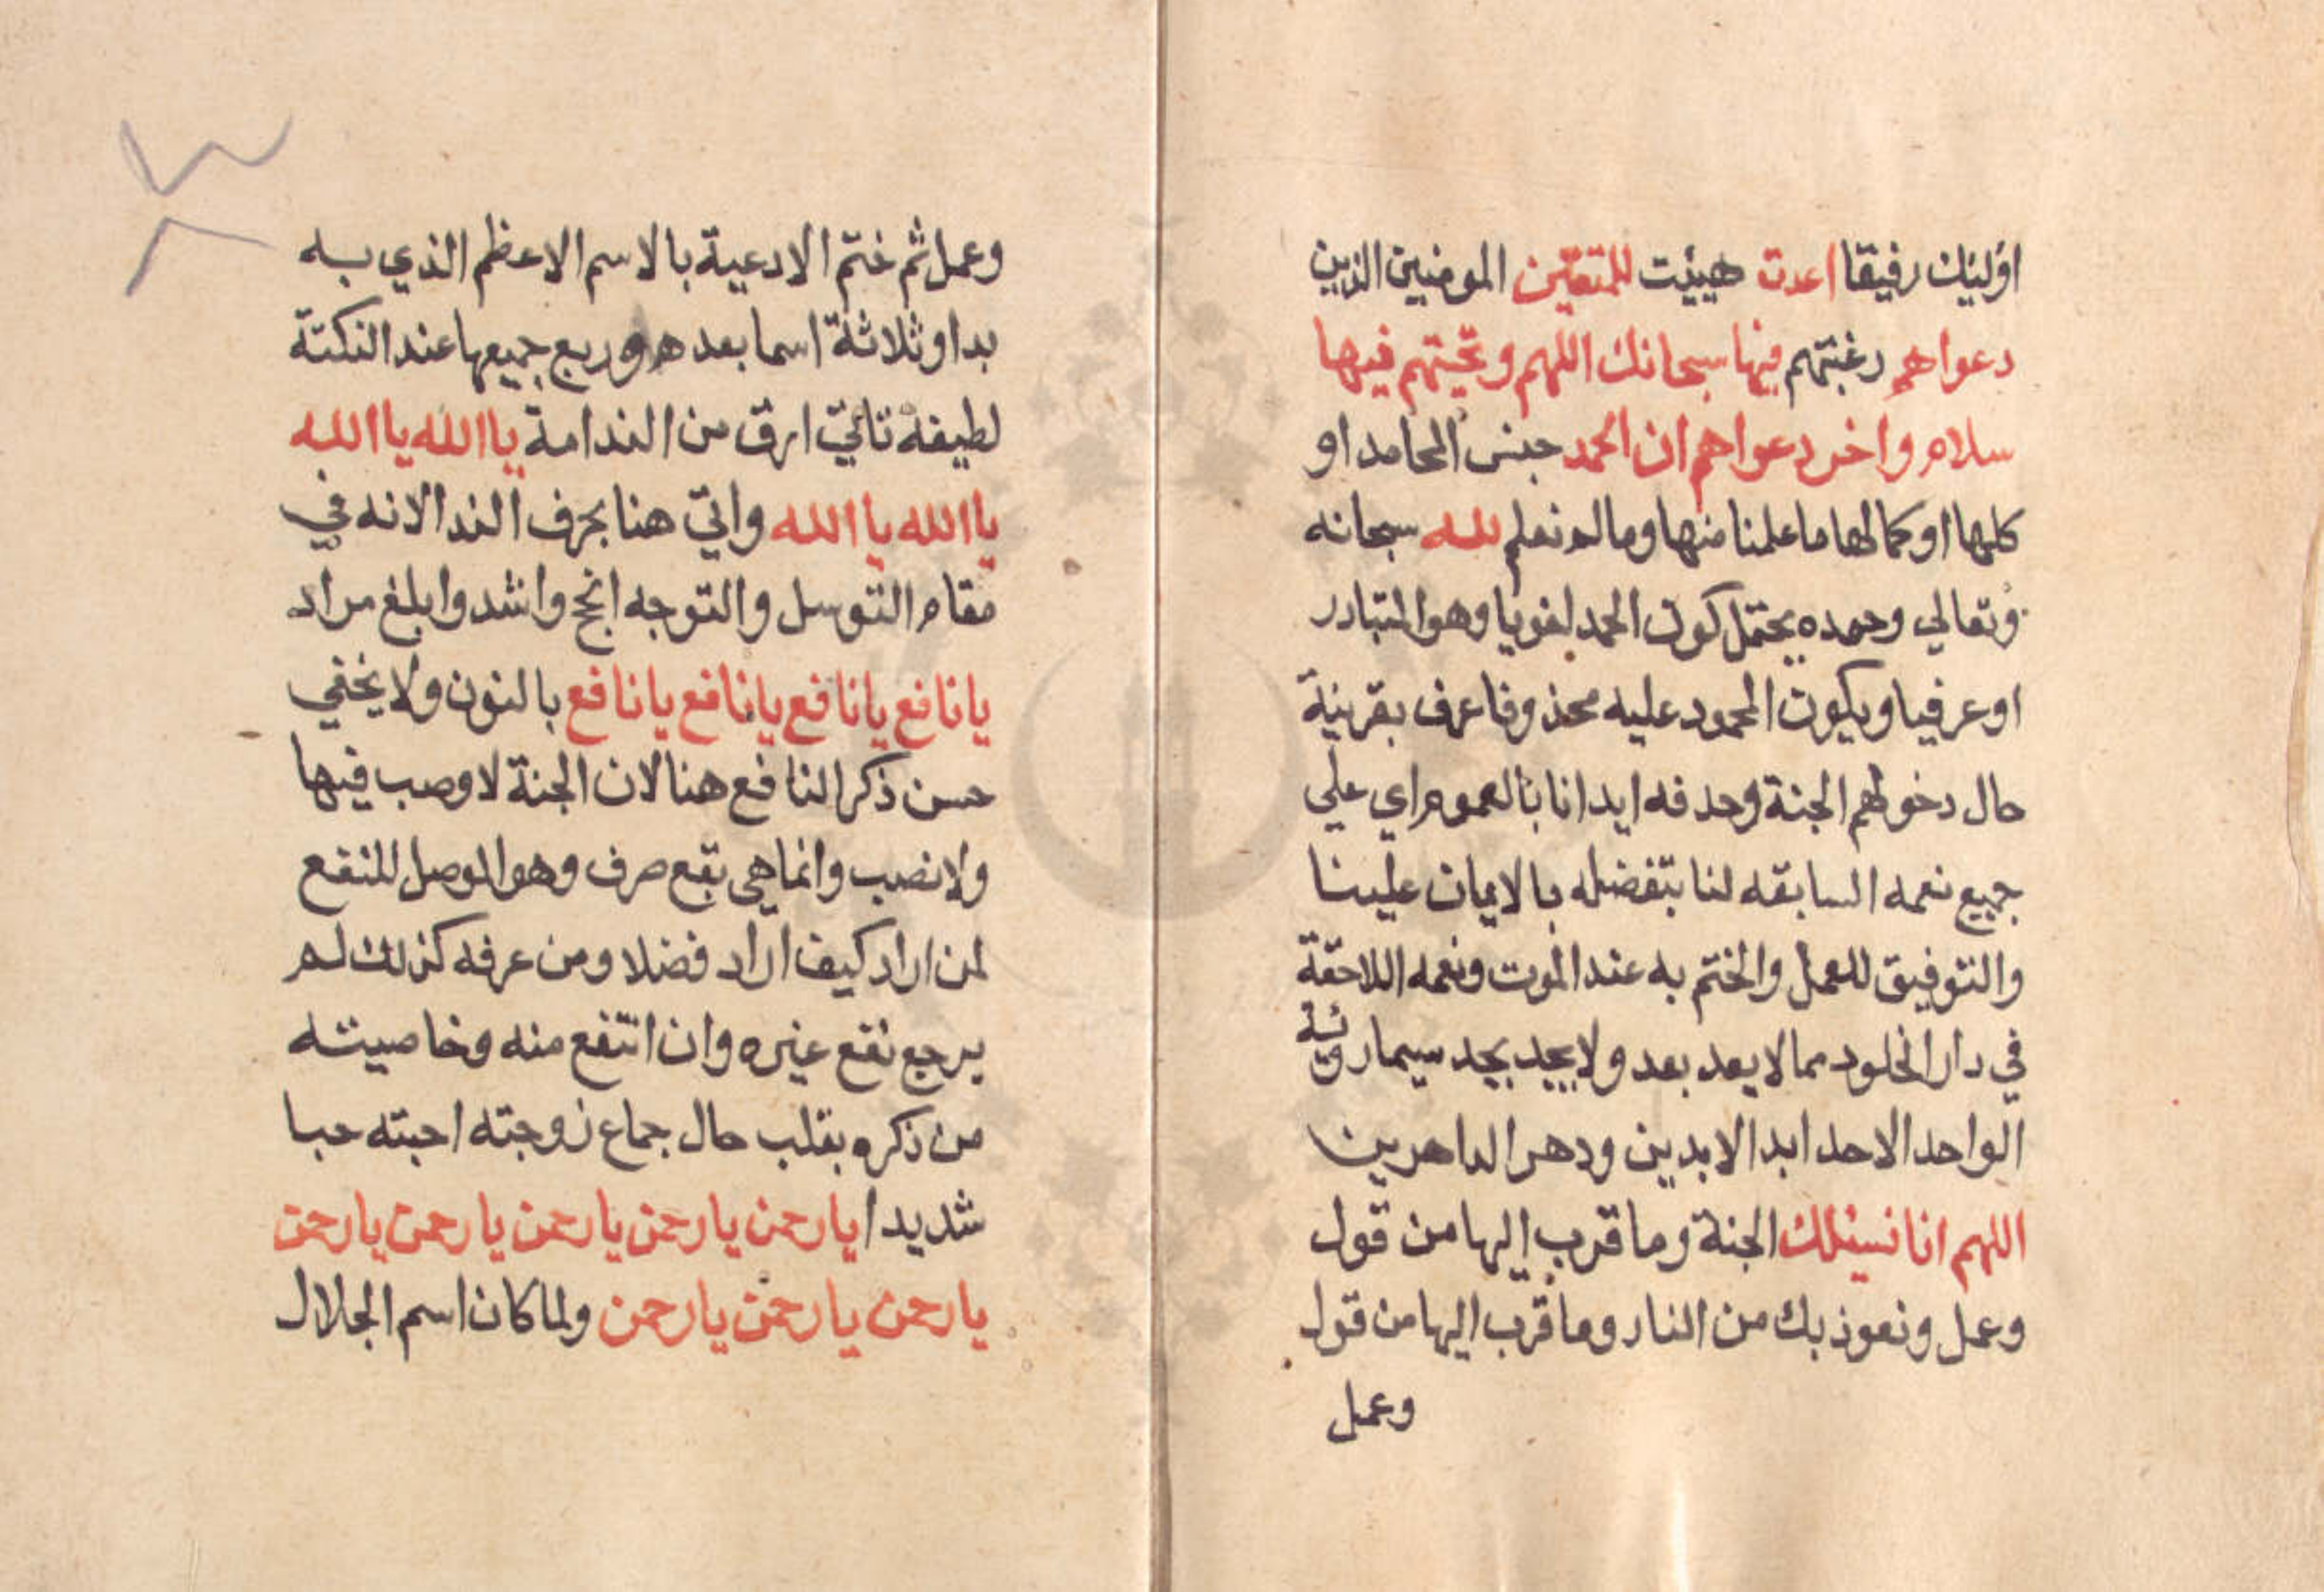 اوليك رفيقا اعدت هيئت للمتقين المومنين الذين
دعواهم رغبتهم فيها سبحانك اللهم وتحيتهم فيها
سلام واخر دعواهم ان الحمد جنس المحامد او
كلها او كمالها ما علمنا منها وما لم نعلم لله سبحانه
وتعالي وحمده يحتمل كون الحمد لغويا وهو المتبادر
او عرفيا ويكون المحمود عليه محذوفا عرف بقرينة
حال دخولهم الجنة وحذفه ايذانا بالعموم اي علي
جميع نعمه السابقه لنا بتفضله بالايمان علينا
والتوفيق للعمل والختم به عند الموت ونعمه اللاحقة
في دار الخلود مما لا يعد بعد ولا يحد بحد سيما روية
الواحد الاحد ابد الابدين ودهر الداهرين
اللهم انا نسئلك الجنة وما قرب اليها من قول
وعمل ونعوذ بك من النار وما قرب اليها من قول
وعمل
وعمل ثم ختم الادعية بالاسم الاعظم الذي به
بدا وثلاثة اسما بعده وربع جميعها عند النكتة
لطيفة تاتي ارق من الندامة يا الله يا الله
يا الله يا الله واتي هنا بحرف الندا لانه في
مقام التوسل والتوجه انجح واشد وابلغ مراد
يا نافع يا نافع يا نافع يا نافع بالنون ولا يخفي
حسن ذكر النافع هنا لان الجنة لا وصب فيها
ولا نصب وانما هي نفع صرف وهو الموصل للنفع
لمن اراد كيف اراد فضلا ومن عرفه كذلك لم
يرجع نفع غيره وان انتفع منه وخاصيته
من ذكره بقلب حال جماع زوجته احبته حبا
شديدا يا رحمن يا رحمن يا رحمن يا رحمن يا رحمن
يا رحمن يا رحمن يا رحمن ولما كان اسم الجلال